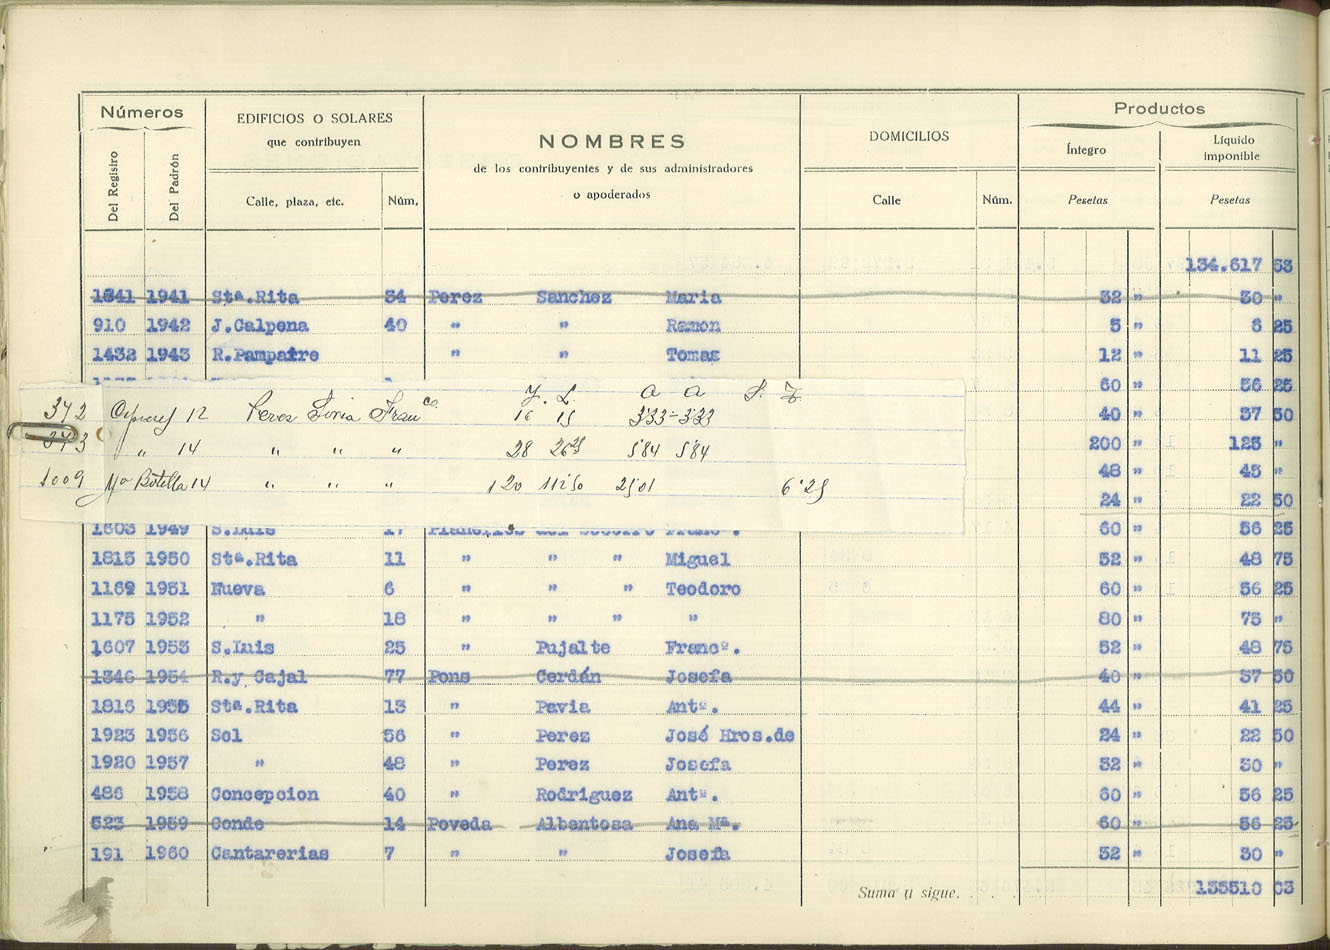 Números EDIFICIOS O SOLARES que contribuyen NOMBRES de los contribuyentes y de sus administradores o apoderados DOMICILIOS Productos
Íntegro Líquido imponible
Del Registro Del Padrón Calle, plaza, etc. Núm. Calle Núm. Pesetas Pesetas
134.617 53
1841 1941 Stª.Rita 34 Perez Sanchez Maria 32 " 30 "
910 1942 J.Calpena 40 " " Ramon 5 " 6 25
1432 1943 R.Pampaire " " Tomas 12 " 11 25
60 " 56 25
J. L. a a
372 12 Perez Soria Franco. 16 15 3'33 - 3'33
40 " 37 50
373 " 14 " " " 28 26 25 5'84 5'84
200 " 125 "
1009 Mª Botella 14 " " " 120 112'50 25'01 6'25
48 " 45 "
24 " 22 50
1603 1949 S.Luis 17 60 " 56 25
1815 1950 Stª.Rita 11 " " " Miguel 52 " 48 75
1169 1951 Nueva 6 " " " Teodoro 60 " 56 25
1175 1952 " 18 " " " " 80 " 75 "
1607 1953 S.Luis 25 " Pujalte Francº. 52 " 48 75
1346 1954 R.y Cajal 77 Pons Cerdán Josefa 40 " 37 50
1816 1955 Stª.Rita 13 " Pavia Antº. 44 " 41 25
1923 1956 Sol 56 " Perez José Hros.de 24 " 22 50
1920 1957 " 48 " Perez Josefa 32 " 30 "
486 1958 Concepcion 40 " Rodriguez Antº. 60 " 56 25
523 1959 Conde 14 Poveda Albentosa Ana Mª. 60 " 56 25
191 1960 Cantarerias 7 " " Josefa 32 " 30 "
Suma y sigue. . . . 135510 03